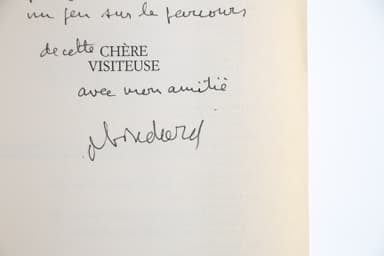 un peu sur le parcours
de cette CHÈRE
VISITEUSE
avec mon amitié